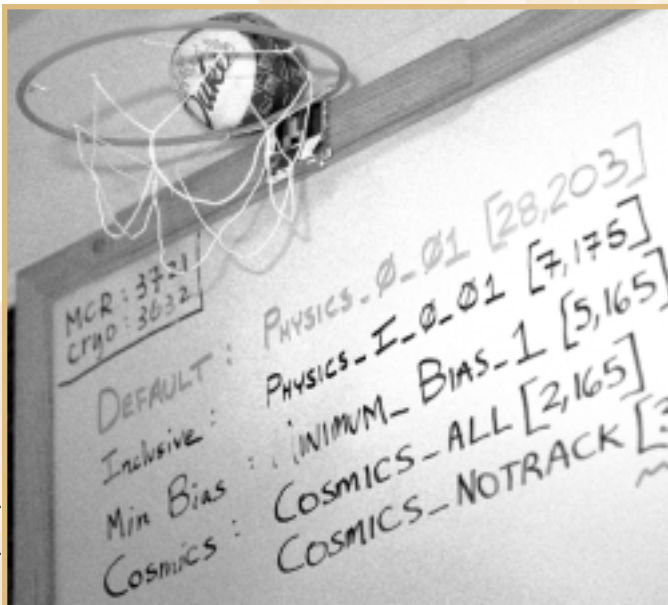 Duke
MCR: 3721
Cryo: 3632
DEFAULT: PHYSICS_Ø_Ø1 [28,203]
Inclusive: PHYSICS_I_Ø_Ø1 [7,175]
Min Bias: MINIMUM_BIAS_1 [5,165]
Cosmics: COSMICS_ALL [2,165]
COSMICS_NOTRACK [3